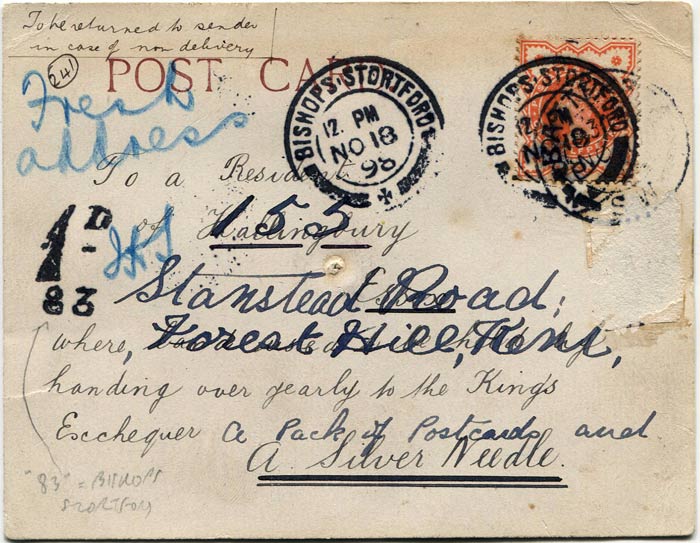 To be returned to sender
in case of non delivery
241
POST CARD
Fresh
address
BISHOPS-STORTFORD
12. PM
NO 18
98
BISHOPS-STORTFORD
12. PM
To a Resident
of Hallingbury
155
1D
83
Essex
Stanstead Road,
where,
Forest Hill, Kent,
handing over yearly to the King's
Escchequer a Pack of Postcards and
A Silver Needle.
"83" = BISHOPS
STORTFORD